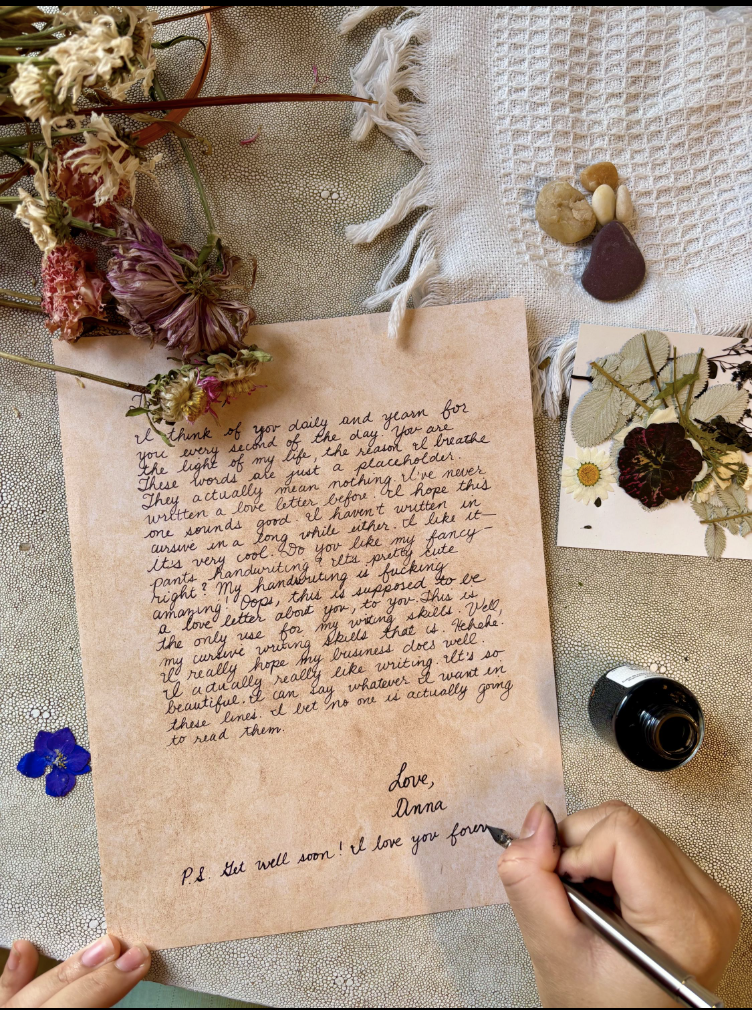 I think of you daily and yearn for
you every second of the day. You are
the light of my life, the reason I breathe
These words are just a placeholder.
They actually mean nothing. I've never
written a love letter before. I hope this
one sounds good. I haven't written in
cursive in a long while either. I like it—
It's very cool. Do you like my fancy—
pants handwriting? It's pretty cute
right? My handwriting is fucking
amazing! Oops, this is supposed to be
a love letter about you, to you. This is
the only use for my writing skills. Well,
my cursive writing skills that is. Hehehe.
I really hope my business does well.
I actually really like writing. It's so
beautiful. I can say whatever I want in
these lines. I bet no one is actually going
to read them.
Love,
Anna
P.S. Get well soon! I love you forev